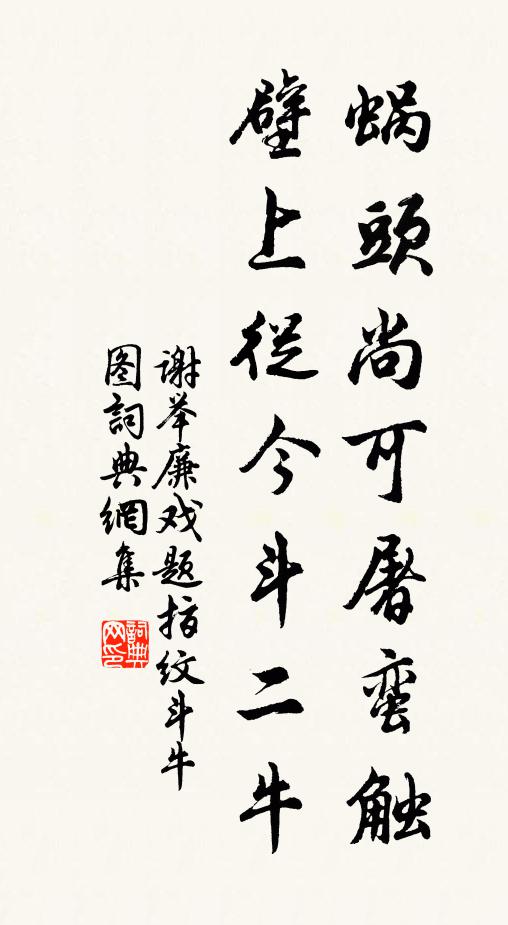 蜗頭尚可屠蛮触
壁上從今斗二牛
谢举廉戏题指纹斗牛
图詞典網集
詞典网印